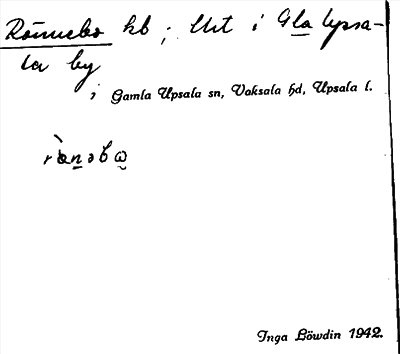 Rönnebo hb; Urt i Gla Upsa-
la by
, Gamla Upsala sn, Vaksala hd, Upsala l.
Inga Löwdin 1942.